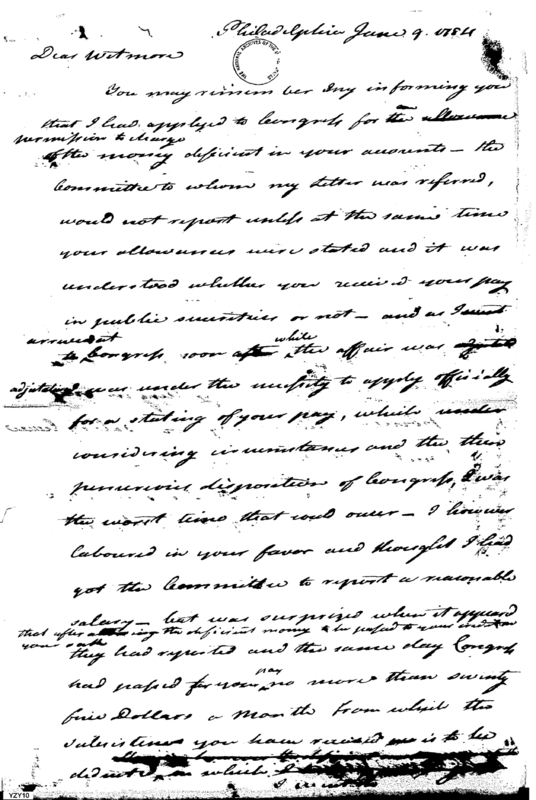 Philadelphia June 9. 1784
Dear Wetmore
You may remember my informing you
that I had applyed to Congress for the allowance
permission to charge
of the money deficient in your accounts – the
Committee to whom my letter was referred,
would not report unless at the same time
your allowances were stated and it was
understood whether you received your pay
in public securities or not – and as I went
arrived at
to Congress soon after while the affair was
adjitating I was under the necessity to apply officially
for a stating of your pay, which under
considering circumstances and the then
penurious disposition of Congress, was
the worst time that could occur – I however
laboured in your favor and thought I had
got the Committee to report a reasonable
salary – but was surprized when it appeared
that after the deficient money to be passed to your credit
they had reported and the same day Congress
pay
had passed for your no more than seventy
five Dollars a Month from which the
subsistence you have received is to be
deducted which
YZY10